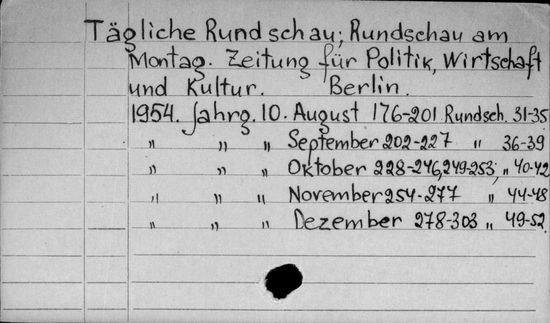 Tägliche Rundschau; Rundschau am
Montag. Zeitung für Politik, Wirtschaft
und Kultur. Berlin.
1954. Jahrg. 10. August 176-201 Rundsch. 31-35
" " " September 202-227 " 36-39
" " " Oktober 228-246, 249-253; " 40-42
" " " November 254-277 " 44-48
" " " Dezember 278-303 " 49-52